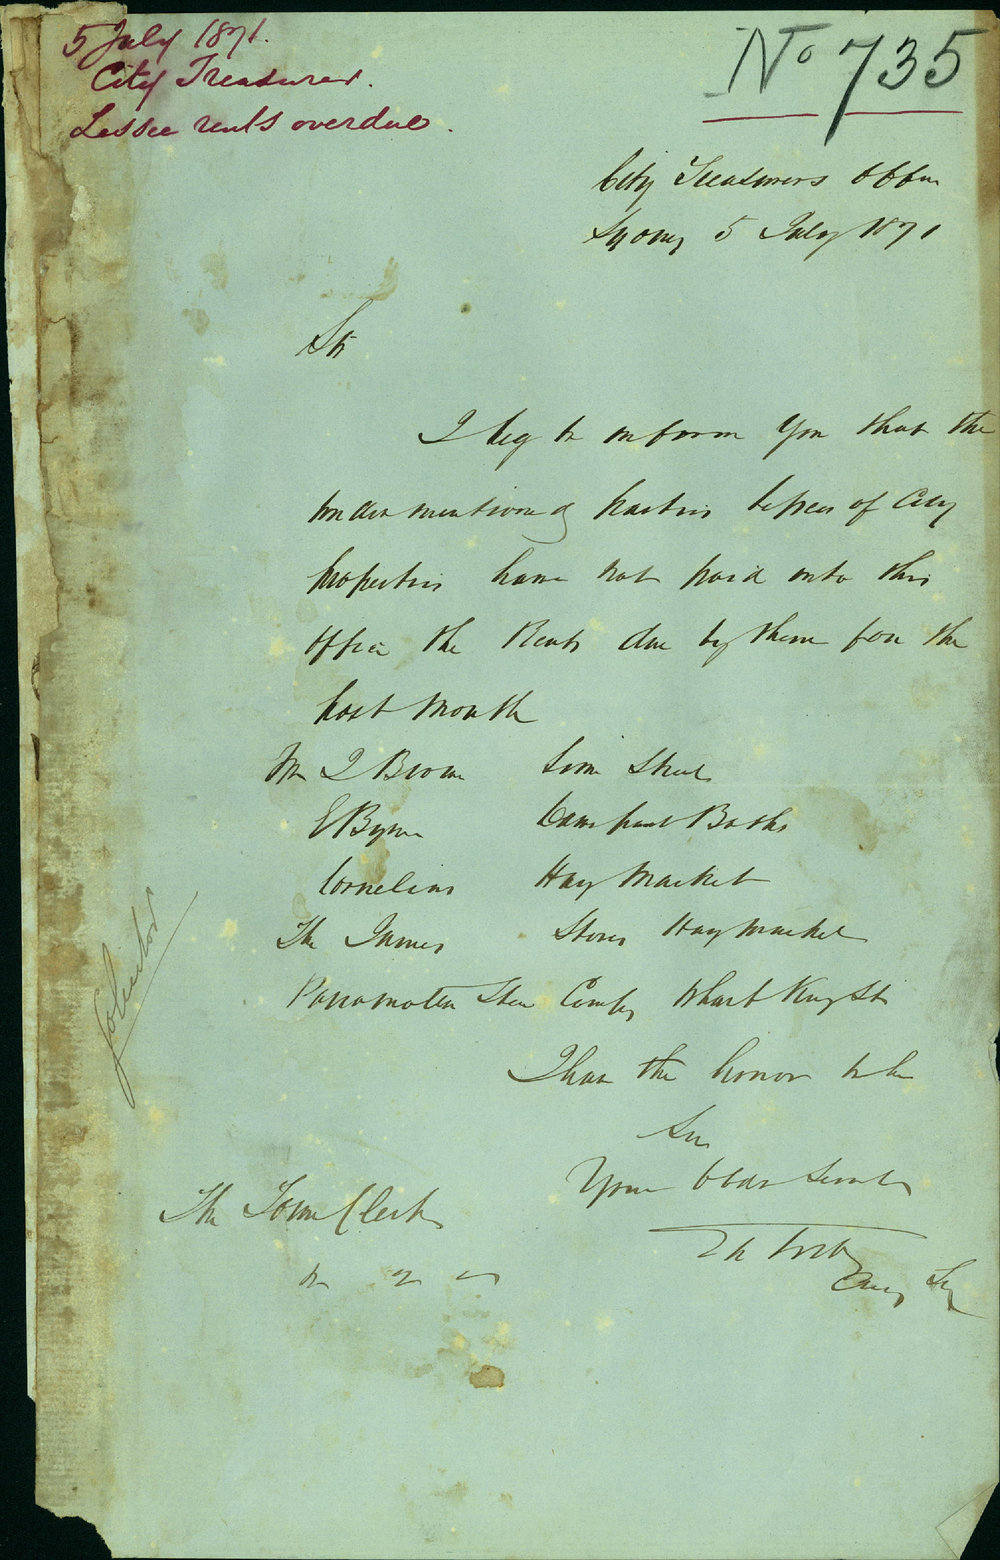 5 July 1871.
City Treasurer.
Lessee rents overdue.
No 735
City Treasurers Office
Sydney 5 July 1871
Sir
I beg to inform you that the
undermentioned parties lessees of City
properties have not paid into this
Office the Rents due by them for the
past Month
Mr J Brown Street
E Byrne Baths
Cornelius Hay Market
The James Stores Haymarket
Parramatta Steam Compy Wharf King St
I have the honor to be
Sir
Your Obdt Servt
City
The Town Clerk
Solicitor